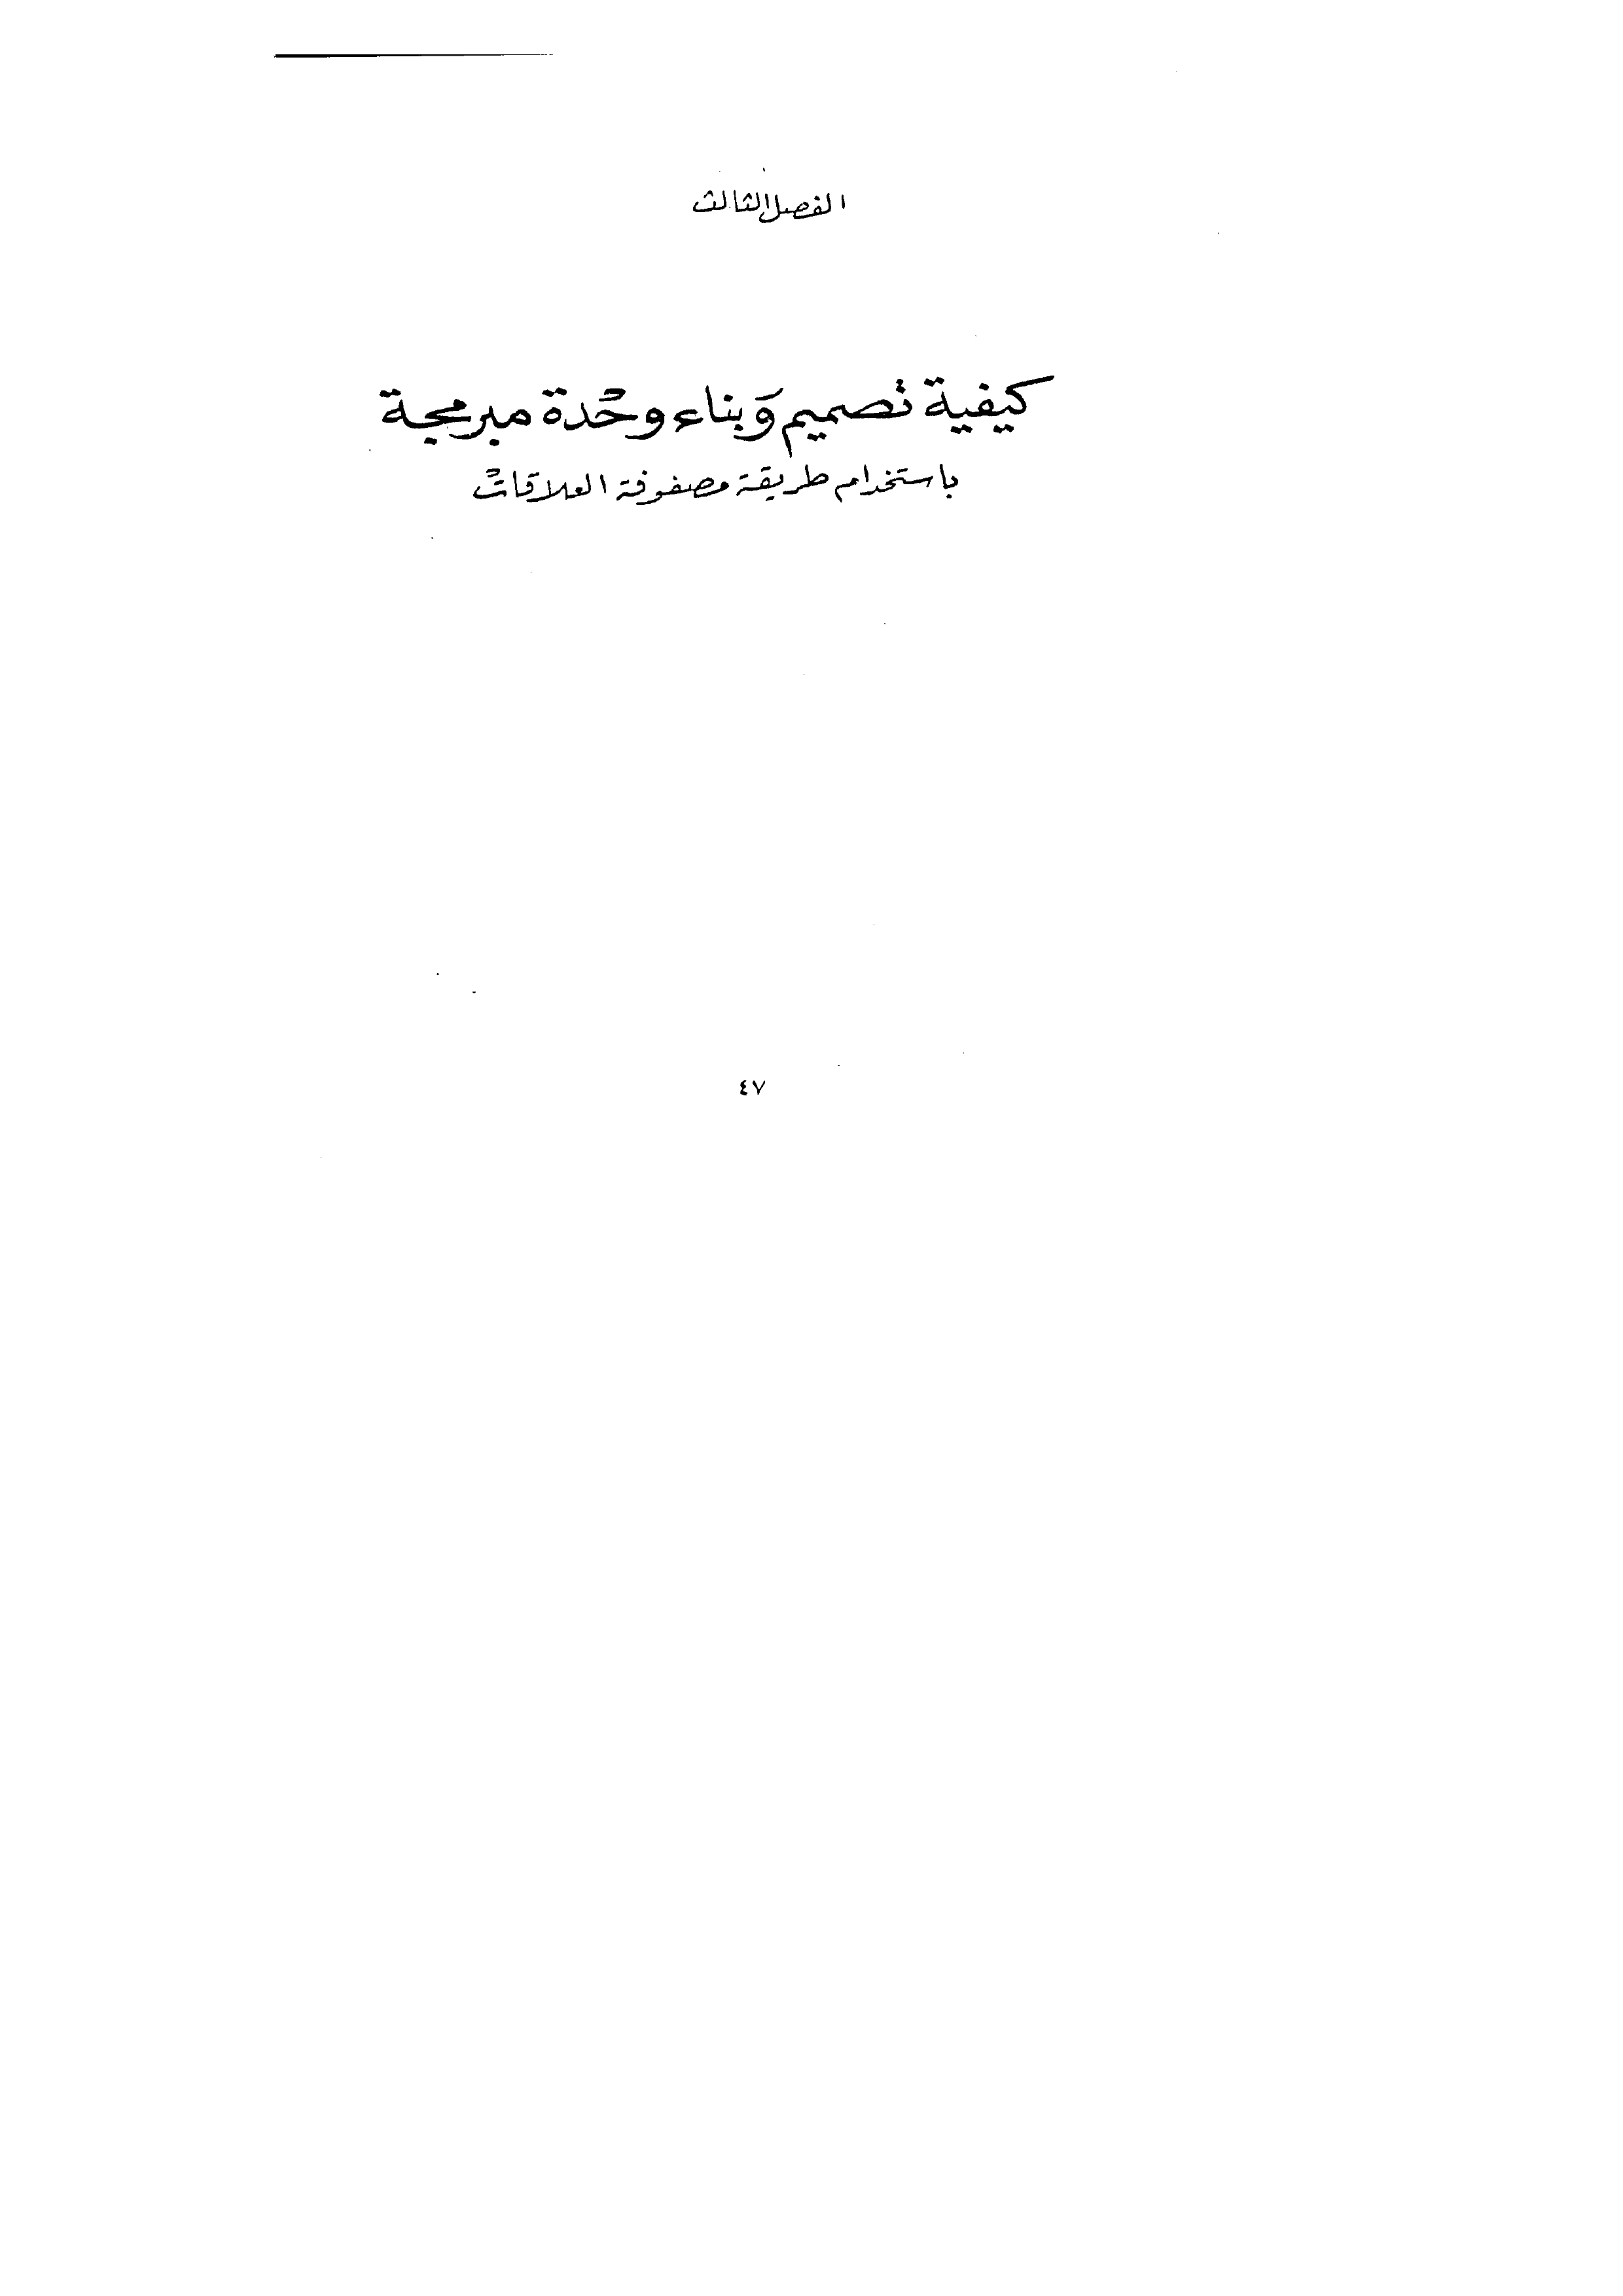 الفصل الثالث
كيفية تصميم وَبناء وحْدة مبرمجة
باستخدام طريقة مصفوفة العلاقات
٤٧